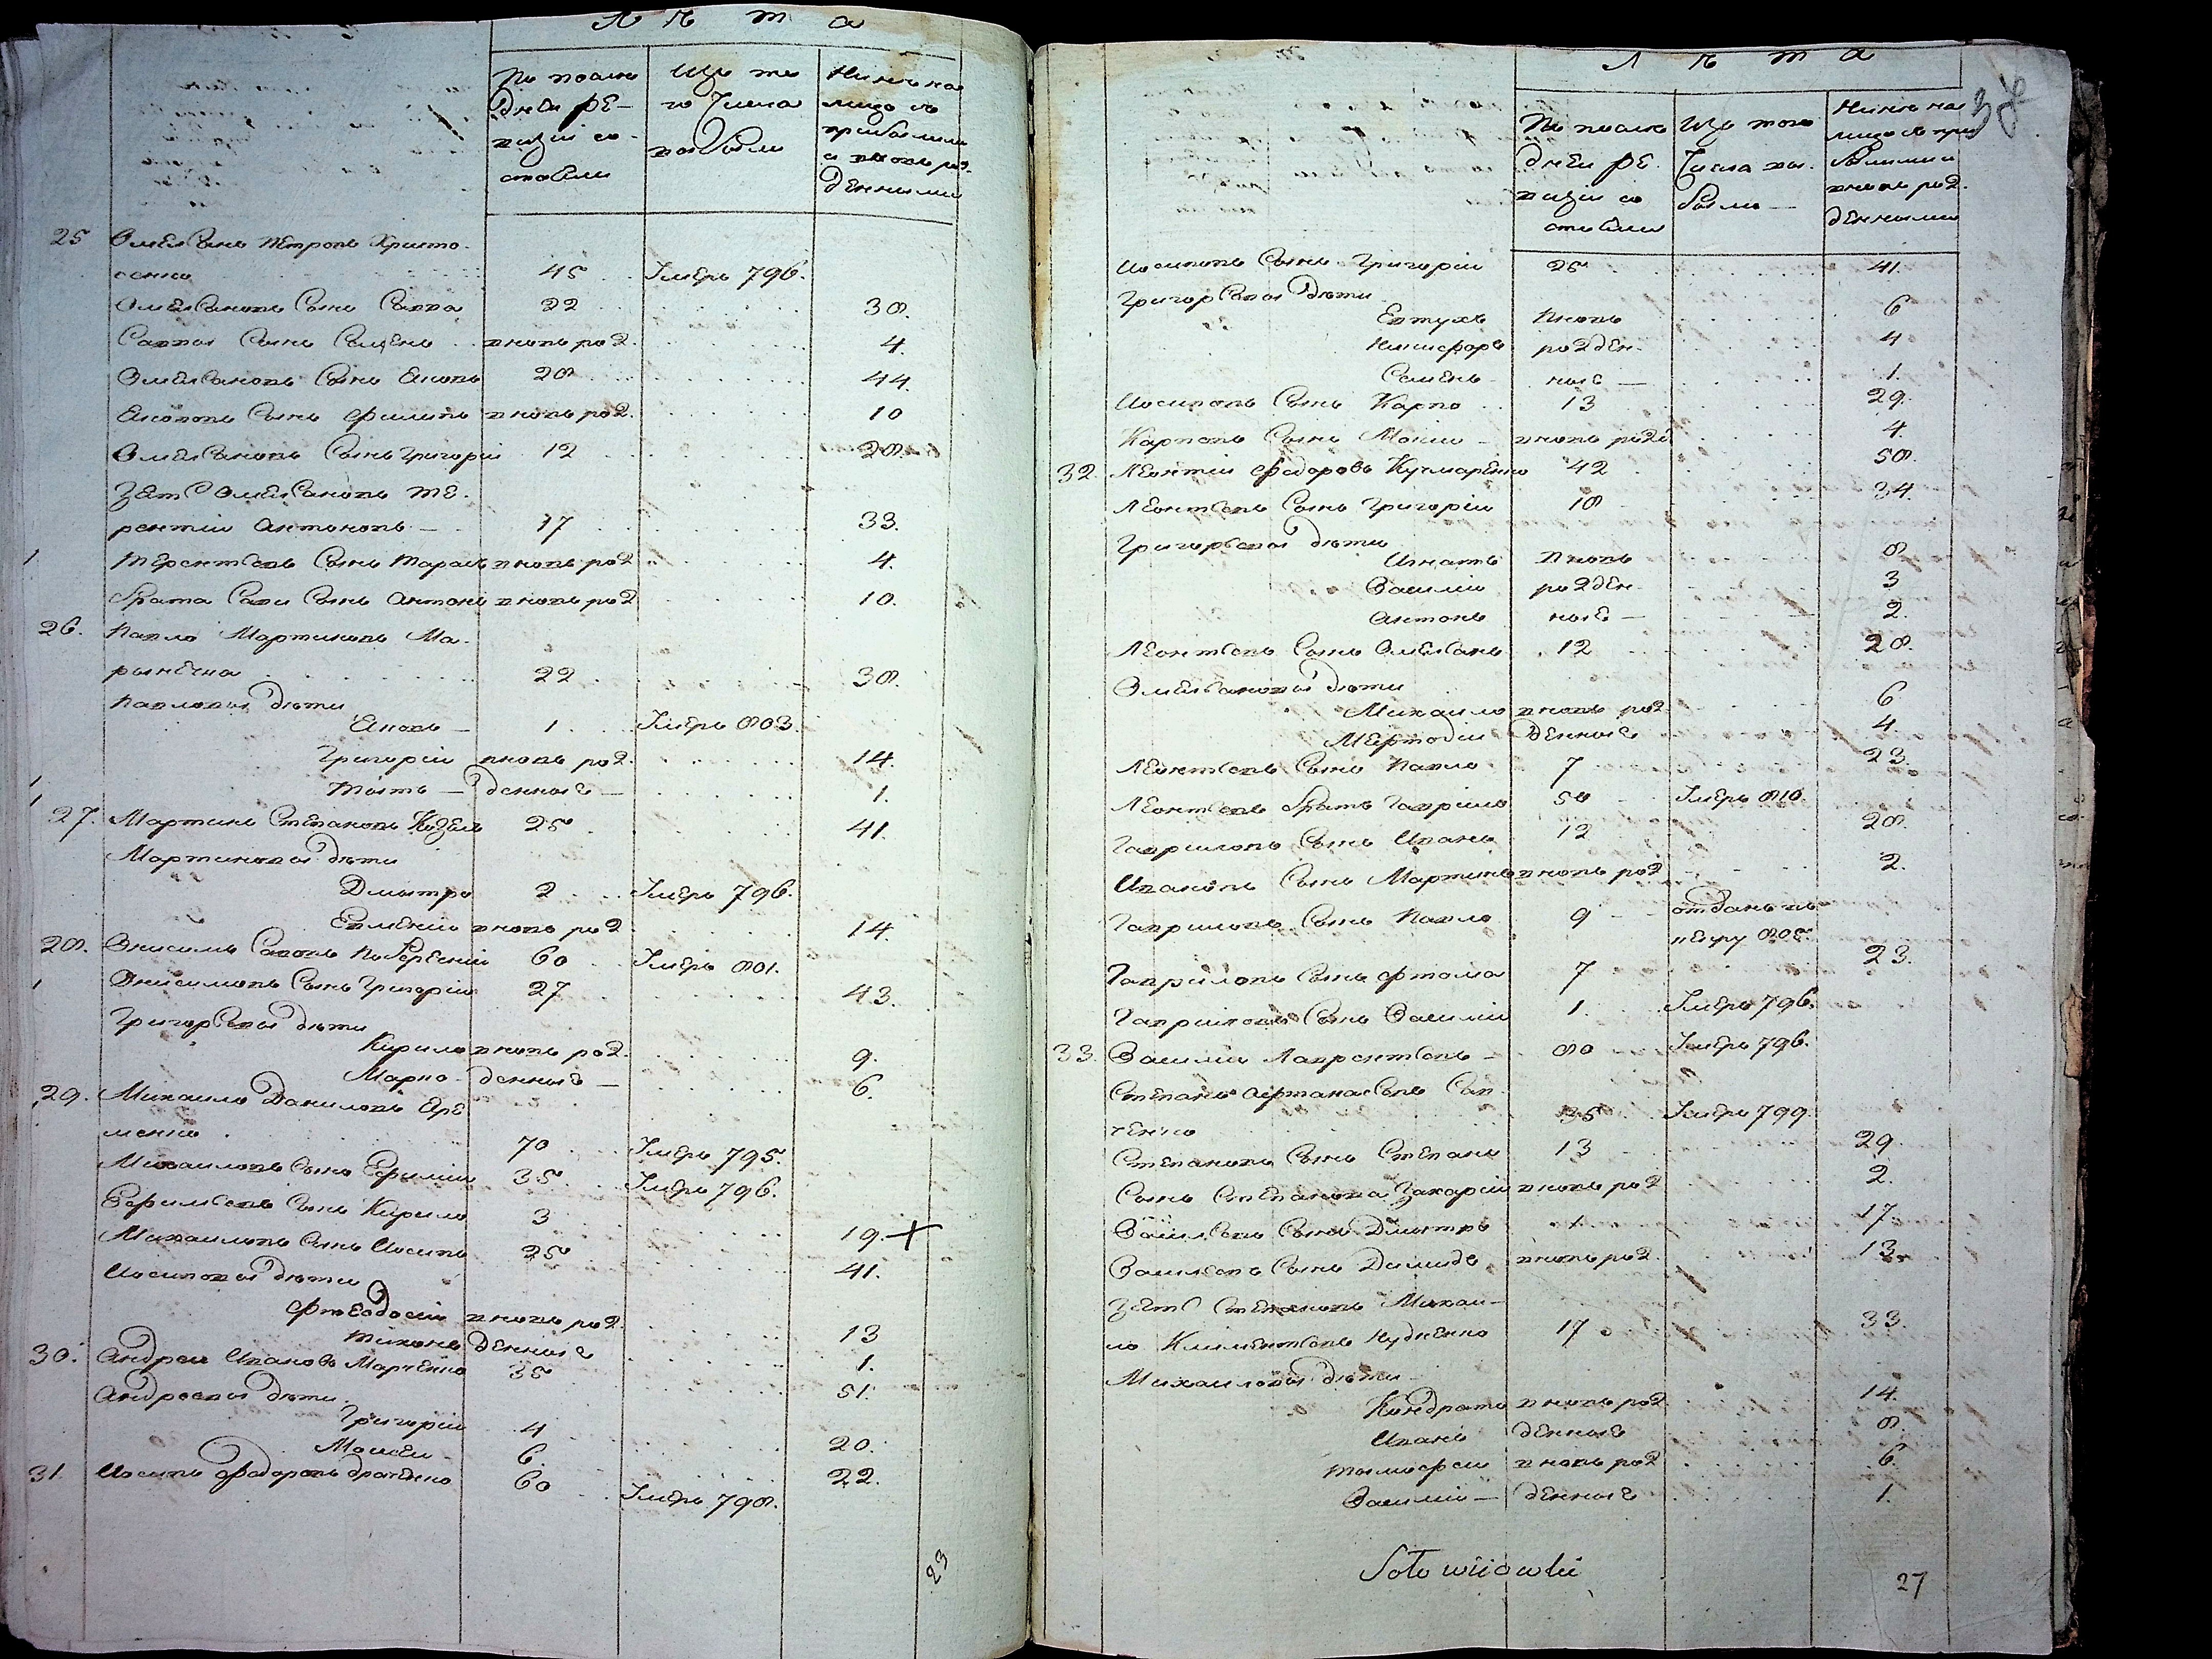 Лѣта
По послѣ
дней ре-
визіи со-
стояли
Изъ то
го числа
выбыло
Нынѣ на
лицо съ
прибылыми
и вновь рож
денными
25 Омельянъ Петровъ Христо
сенко 45 Умеръ 796.
Омельяновъ Сынъ Савва 22 38.
Саввы Сынъ Семенъ вновь рожд. 4.
Омельяновъ Сынъ Яковъ 28 44.
Яковов Сынъ Филипъ вновь рожд. 10
Омельяновъ Сынъ Григорій 12 28.
Зять Омельяновъ Те-
рентій Антоновъ 17 33.
1 Терентьевъ Сынъ Тарасъ вновь рожд 4.
Брата Савы Сынъ Антонъ вновь рожд 10.
26. Павло Мартиновъ Ма-
22 38.
Павловы дѣти
Яковъ 1. Умеръ 803.
Григорій вновь рожд. 14.
денные 1.
27. Мартинъ Степановъ Козелъ 25 41.
Мартиновы дѣти
Дмытро 2 Умеръ 796.
Евменій вновь рожд 14.
28. Онисимъ Савовъ 60 Умеръ 801.
1 Онисимовъ Сынъ Григорій 27 43.
Григорьевы дѣти
Кирило вновь рожд. 9.
Марко денные 6.
29. Михаило Даниловъ Яре
менко 70 Умеръ 795.
Михаиловъ Сынъ Ефимій 35. Умеръ 796.
Ефимьевъ Сынъ Кирило 3 19. +
Михаиловъ Сынъ Иосипъ 25 41.
Иосиповы дѣти
Фтеодосій вновь рожд. 13
Тихонъ денные 1.
30. Андрей Ивановъ Марченко 35 51.
Андреевы дѣти
Григорій 4 20.
Моисей 6. 22.
31. Иосипъ Федоровъ 60 Умеръ 798.
23
Лѣта
38
По послѣ
дней ре-
визіи со
стояли
Изъ того
числа вы-
было
Нынѣ на
лицо съ при
былыми и
вновь рож
денными
Иосиповъ Сынъ Григорій 25 41.
Григорьевы дѣти
Евтухъ вновь 6
Никифоръ рожден- 4
Семенъ ные 1.
Иосиповъ Сынъ Карпо 13 29.
Карповъ Сынъ Мокій вновь рожд 4.
32. Леонтій Федоровъ Кучмаренко 42 58.
Леонтьевъ Сынъ Григорій 18 34.
Григорьевы дѣти
Игнатъ вновь 8
Василій рожден- 3
Антонъ ные 2.
Леонтьевъ Сынъ Омельянъ 12 28.
Омельяновы дѣти
Михаило вновь рожд 6
Мефтодій денные 4.
Леонтьевъ Сынъ Павло 7 23.
Леонтьевъ Братъ Гаврило 50 Умеръ 810
Гавриловъ Сынъ Иванъ 12 28.
Ивановъ Сынъ Мартинъ вновь рожд 2.
Гавриловъ Сынъ Павло 9 отданъ въ
рекру 805.
Гавриловъ Сынъ Фтома 7 23.
Гавриловъ Сынъ Василій 1. Умеръ 796.
33. Василій Лаврентьевъ 80 Умеръ 796.
Степанъ Афтанасьевъ Сав
ченко 35 Умеръ 799.
Степановъ Сынъ Степанъ 13 29.
Сынъ Степанова Захарій вновь рожд 2.
Васильевъ Сынъ Дмытро 1. 17
Васильевъ Сынъ Демидъ вновь рожд. 13.
Зять Степановъ Михаи-
ло Климентьевъ 17 33.
Михаиловы дѣти
Кондратъ вновь рожд 14.
Иванъ денные 8.
Тымофей вновь рожд 6.
Василій денные 1.
27